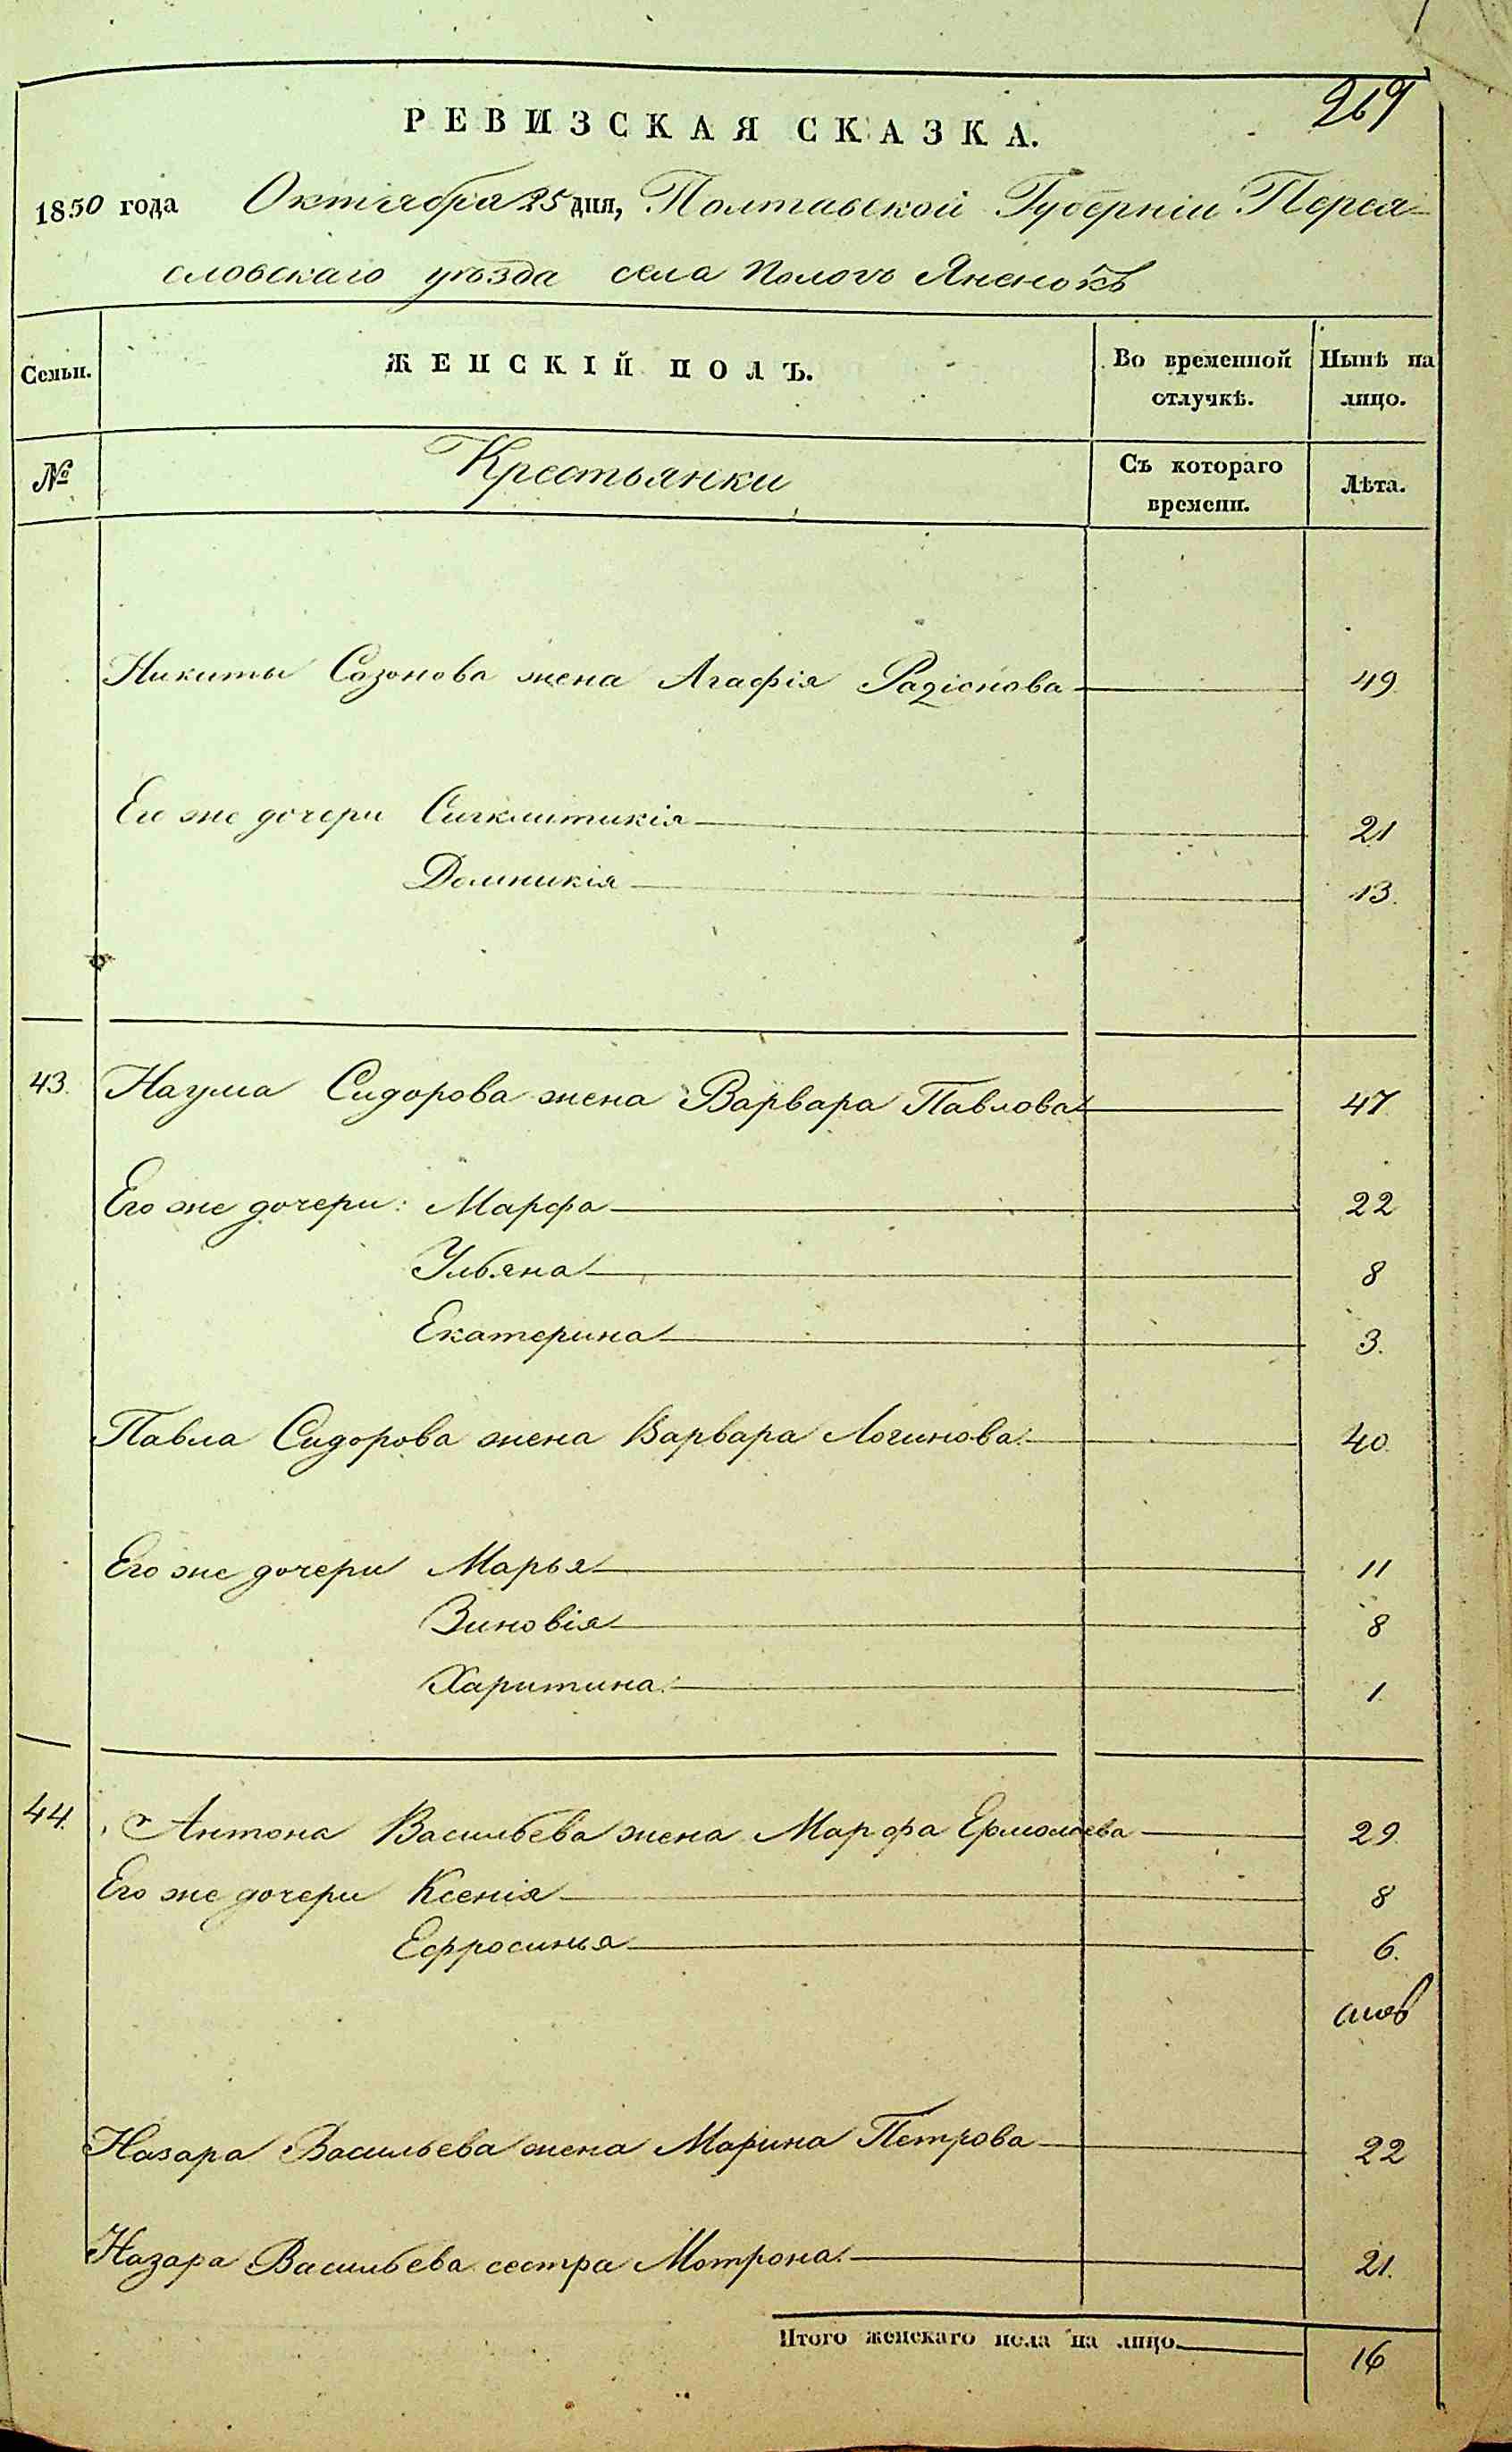 269
РЕВИЗСКАЯ СКАЗКА.
1850 года Октября 25 дня, Полтавской Губерніи Перея-
словскаго уѣзда села Пологъ Яненокъ
Семьи. ЖЕНСКІЙ ПОЛЪ. Во временной отлучкѣ. Нынѣ на лицо.
№ Крестьянки Съ котораго времени. Лѣта.
Никиты Созонова жена Агафія Радіонова 49
Его же дочери Сигклитикія 21
Домникія 13.
43. Наума Сидорова жена Варвара Павлова 47
Его же дочери: Марфа 22
Ульяна 8
Екатерина 3.
Павла Сидорова жена Варвара Логинова 40
Его же дочери Марья 11
Зиновія 8
Харитина 1
44. Антона Васильева жена Марфа Ермолаева 29
Его же дочери Ксенія 8
Ефросинья 6.
Назара Васильева жена Марина Петрова 22
Назара Васильева сестра Мотрона 21.
Итого женскаго пола на лицо 16